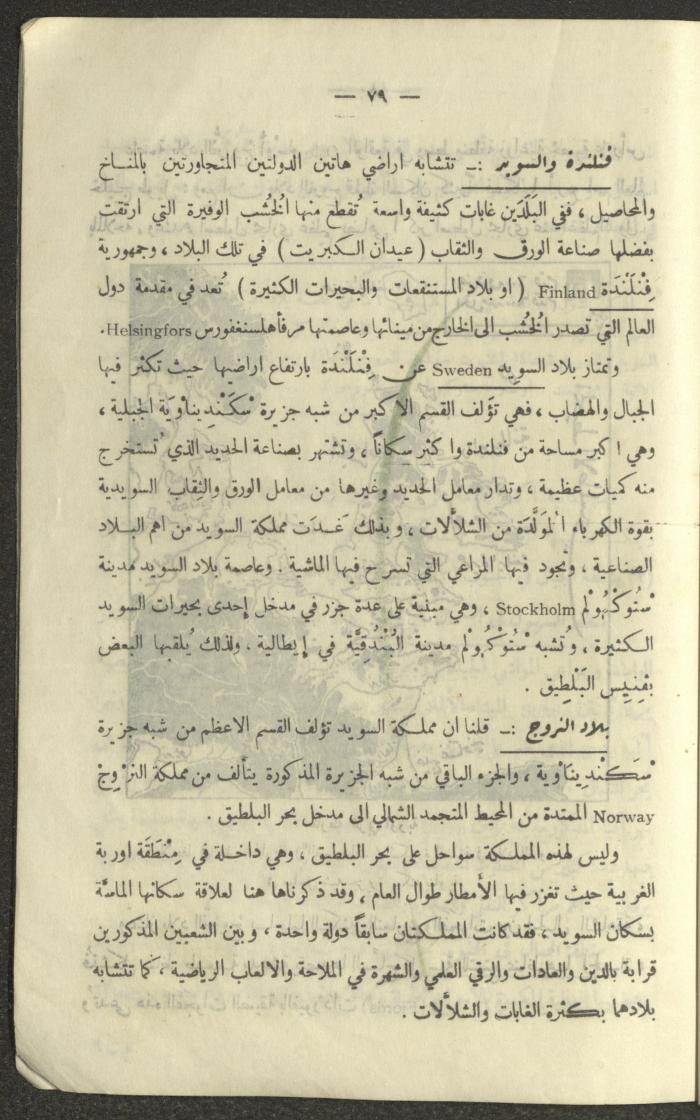 — ٧٩ —
فنلندة والسويد :ـ تتشابه اراضي هاتين الدولتين المتجاورتين بالمناخ
والمحاصيل ، ففي البَلَدَين غابات كثيفة واسعة تُقطع منها الخُشب الوفيرة التي ارتقت
بفضلها صناعة الورق والثقاب ( عيدان الكبريت ) في تلك البلاد ، وجمهورية
فِنْلَنْدَة Finland ( او بلاد المستنقعات والبحيرات الكثيرة ) تُعد في مقدمة دول
العالم التي تصدر الخُشب الى الخارج من مينائها وعاصمتها مرفأ هلسنغفورس Helsingfors.
وتمتاز بلاد السويد Sweden عن فِنْلَنْدَة بارتفاع اراضيها حيث تكثر فيها
الجبال والهضاب ، فهي تؤلف القسم الاكبر من شبه جزيرة سْكَنْدِيناْوِيَة الجبلية ،
وهي اكبر مساحة من فنلندة واكثر سكاناً ، وتشتهر بصناعة الحديد الذي تُستخرج
منه كميات عظيمة ، وتدار معامل الحديد وغيرها من معامل الورق والثِقاب السويدية
بقوة الكهرباء المُوَلَّدَة من الشلاَّلات ، وبذلك غَدَت مملكة السويد من اهم البلاد
الصناعية ، وتجود فيها المراعي التي تسرح فيها الماشية . وعاصمة بلاد السويد مدينة
سْتُوكْهُولْم Stockholm ، وهي مبنية على عدة جزر في مدخل إحدى بحيرات السويد
الكثيرة ، وتُشبه سْتُوكْهُولْم مدينة البُنْدُقِيَّة في إيطالية ، ولذلك يُلقبها البعض
بڤِنِيس البَلْطيق .
بلاد النروج :ـ قلنا ان مملكة السويد تؤلف القسم الاعظم من شبه جزيرة
سْكَنْدِيناْوية ، والجزء الباقي من شبه الجزيرة المذكورة يتألف من مملكة النرْوِجْ
Norway الممتدة من المحيط المتجمد الشمالي الى مدخل بحر البلطيق .
وليس لهذه المملكة سواحل على بحر البلطيق ، وهي داخلة في مِنْطَقَة اوربة
الغربية حيث تغزر فيها الأمطار طوال العام ، وقد ذكرناها هنا لعلاقة سكانها الماسَّة
بسكان السويد ، فقد كانت المملكتان سابقاً دولة واحدة ، وبين الشعبين المذكورين
قرابة بالدين والعادات والرقي العلمي والشهرة في الملاحة والالعاب الرياضية ، كما تتشابه
بلادهما بكثرة الغابات والشلاَّلات .